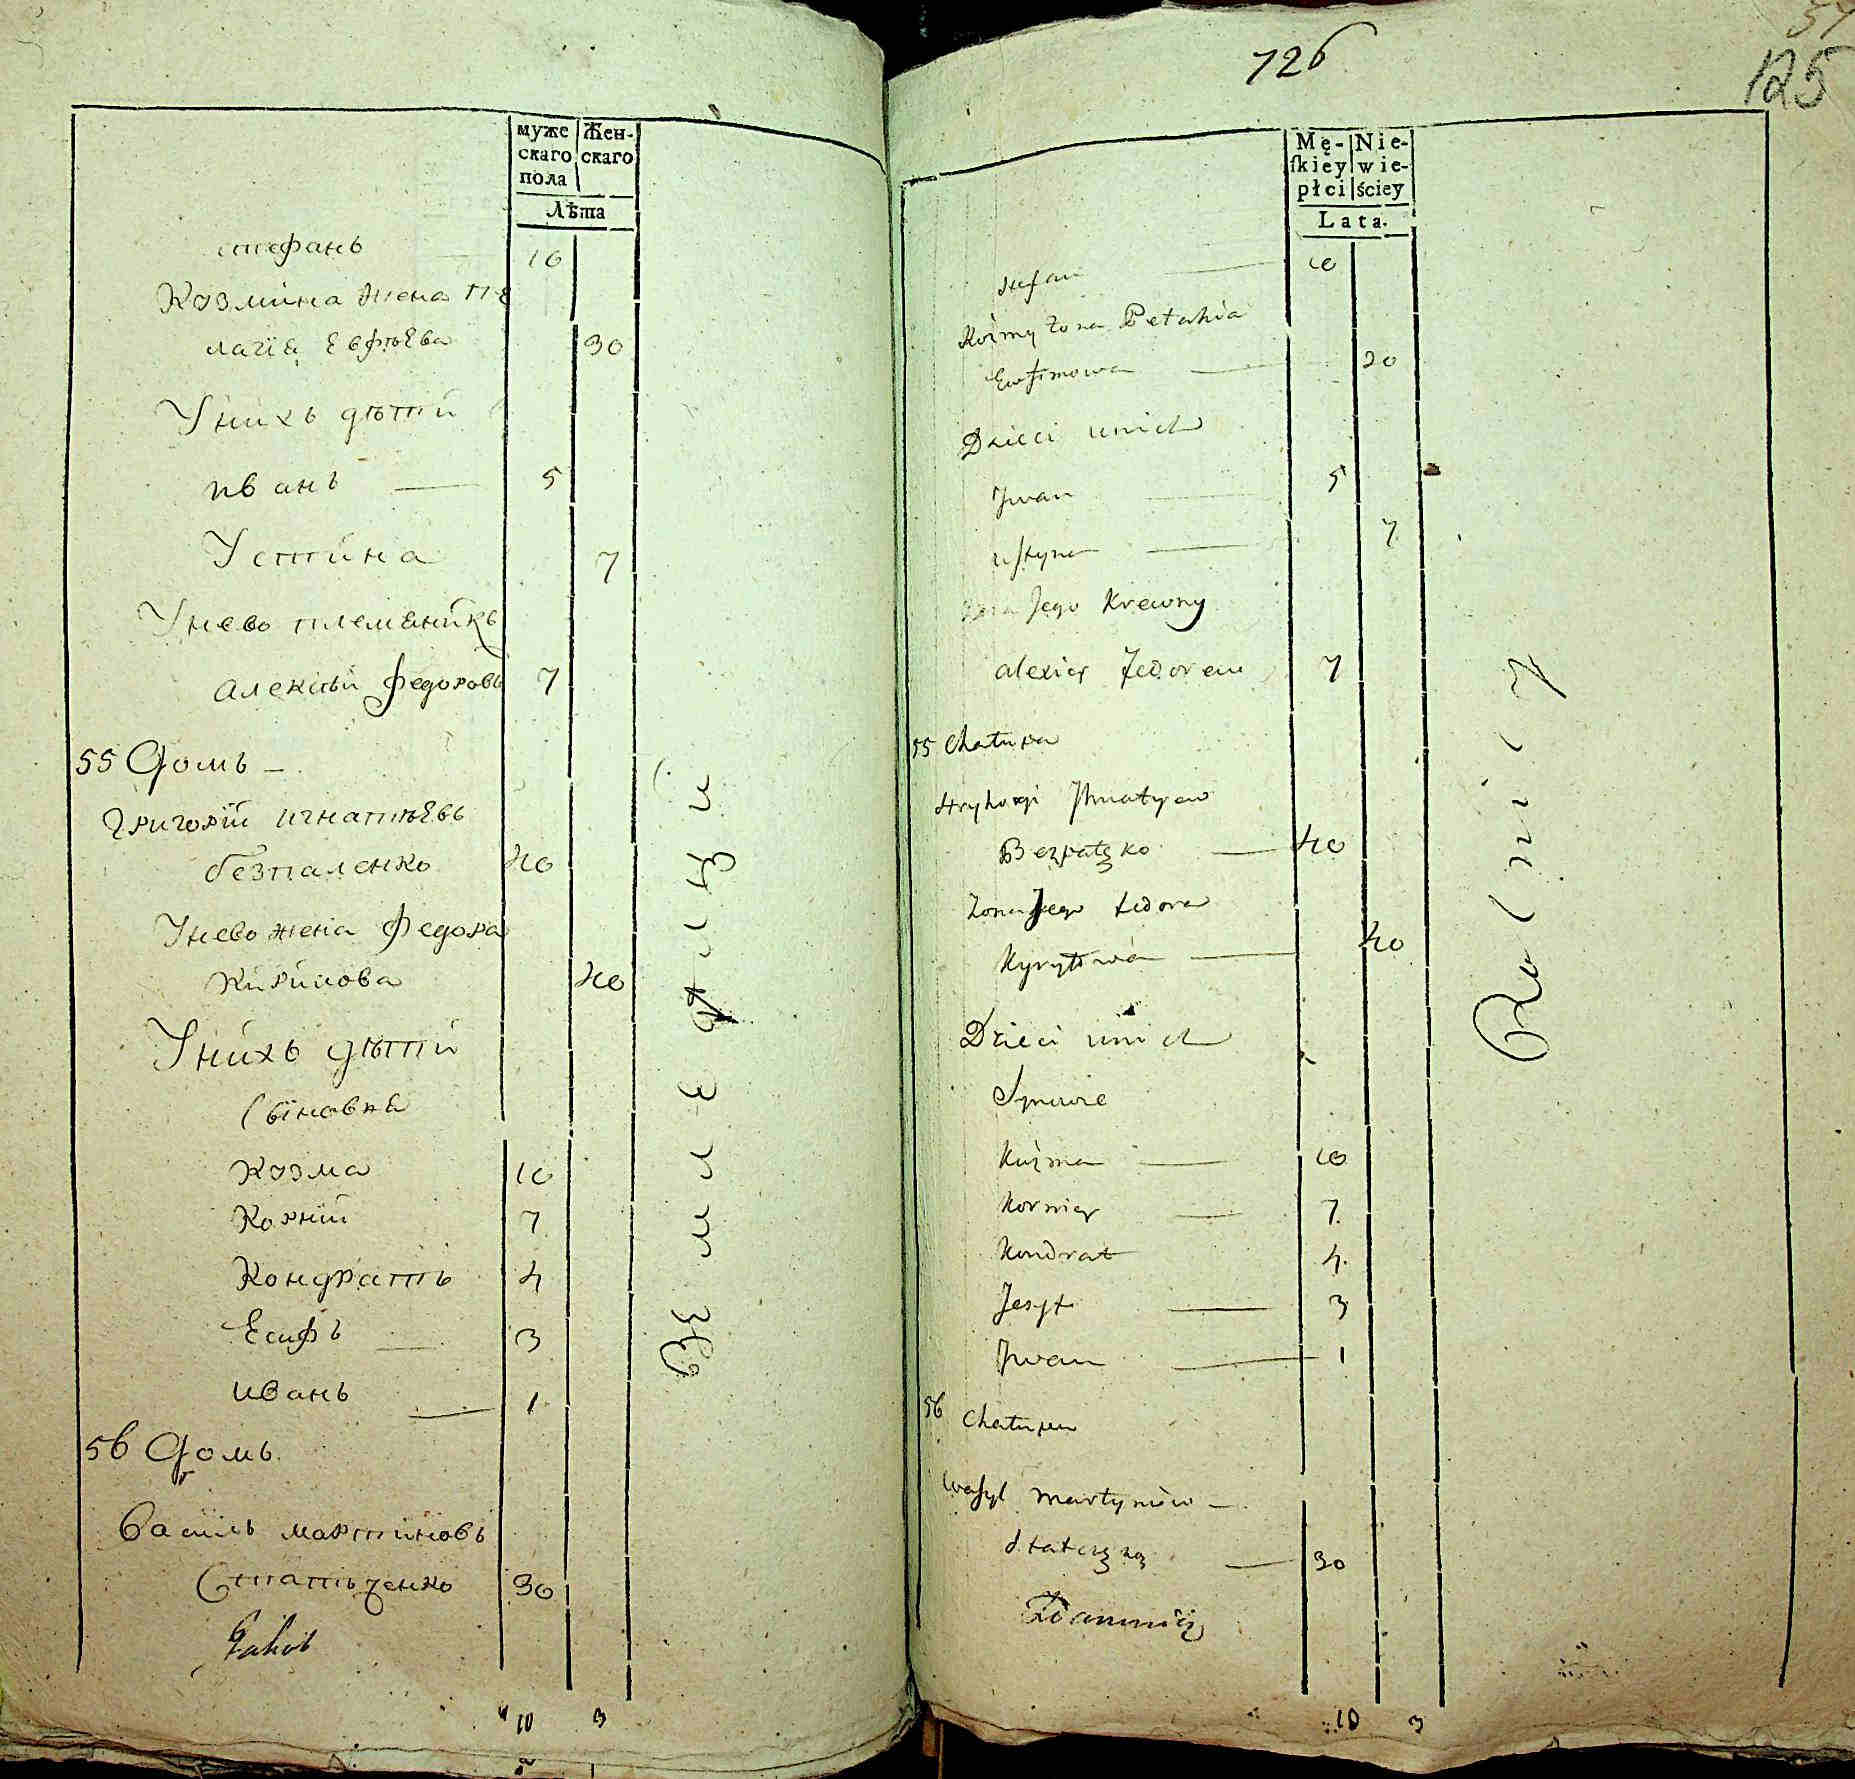 муже Жен-
скаго скаго
пола
Лѣта
стефанъ 10
Козмина жена пе
лагіа Евфиева 30
Унихъ дѣтй
иванъ 5
Устина 7
Унево племеникъ
алексѣй федоровъ 7
55 Домъ
григорій игнатиевъ
безпаленко 40
Унево жена Федора
Кирилова 40
Унихъ дѣтй
Козма 10
Корнїй 7
Кондратъ 4
Есифъ 3
иванъ 1
56 Домъ
Василь мартиновъ
Статьченко 30
10 3
Земледѣлцы
726
125
Mę- Nie-
ſkiey wie-
płci ściey
Lata.
stefan 10
Koźmy żona Petahia
Ewfimowa 30
Dzieci unich
Jwan 5
ustyna 7
Jego Krewny
alexiey fedorew 7
55 Chatupa
Hryhorgi Jhnatyew
Bezpałzko 40
żona Jego fedora
Kyryłowa 40
Dzieci unich
Synowie
Kuźma 10
Korniey 7
Kondrat 4
Jesyf 3
Jwan 1
56 Chatupa
Wasyl martynów
30
10 3
Rolnicy